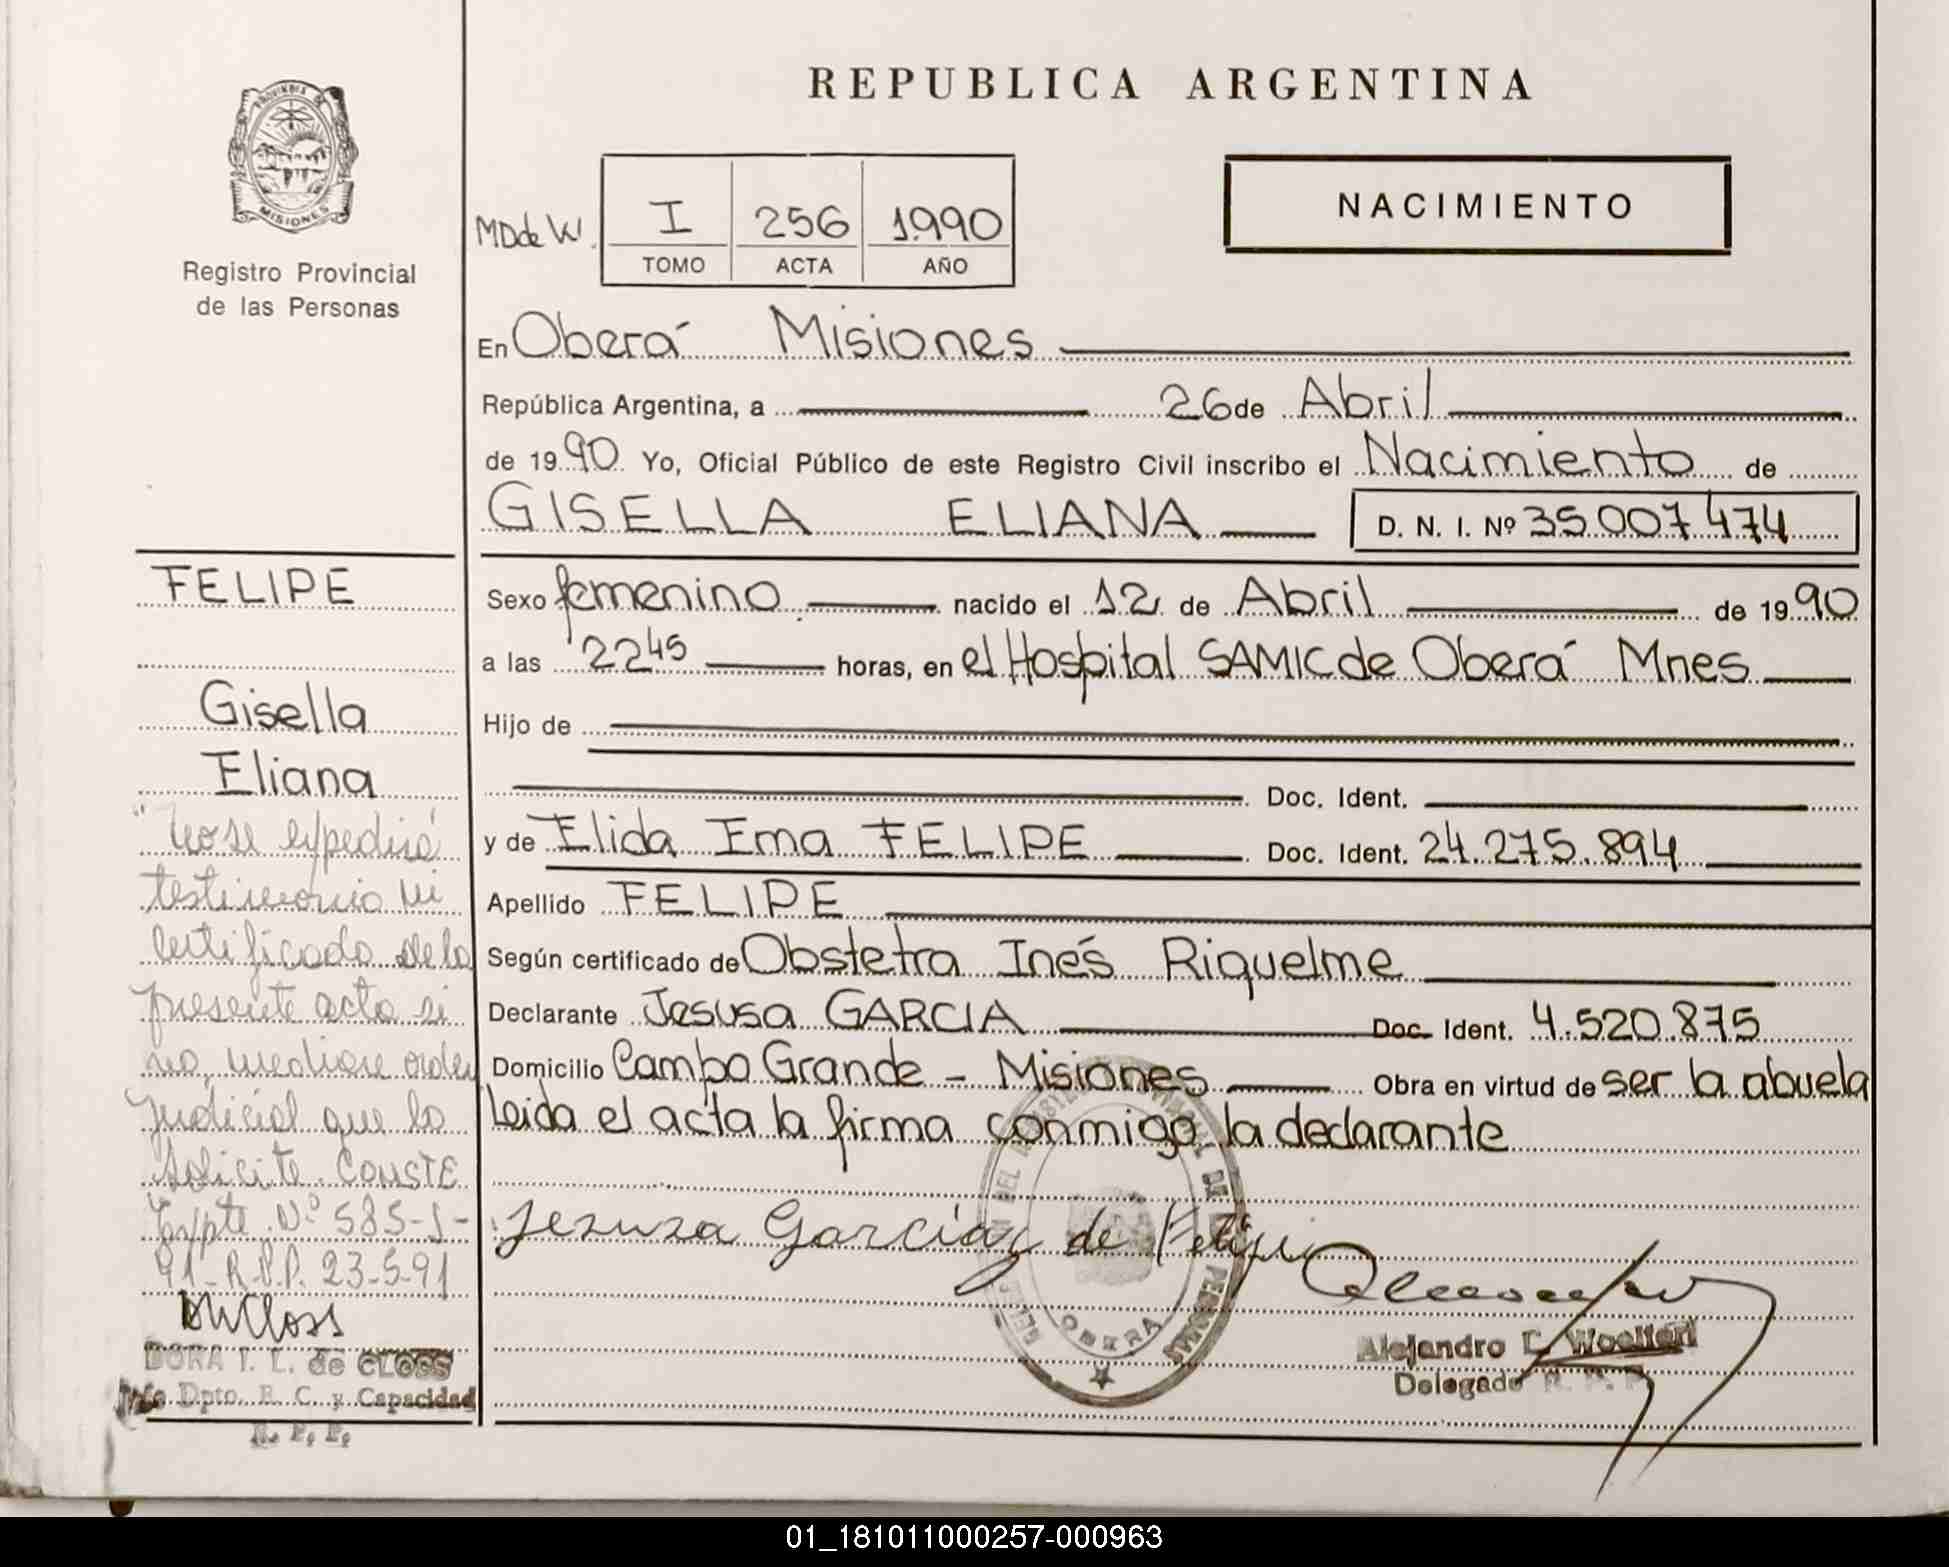 REPUBLICA ARGENTINA
PROVINCIA DE
MISIONES
Registro Provincial
de las Personas
NACIMIENTO
MDdeW.
I 256 1990
TOMO ACTA AÑO
En Oberá Misiones
República Argentina, a 26 de Abril
de 1990 Yo, Oficial Público de este Registro Civil inscribo el Nacimiento de
GISELLA ELIANA D. N. I. Nº 35.007.474
Sexo femenino nacido el 12 de Abril de 1990
a las 22 45 horas, en el Hospital SAMIC de Oberá Mnes
Hijo de
Doc. Ident.
y de Elida Ema FELIPE Doc. Ident. 24.275.894
Apellido FELIPE
Según certificado de Obstetra Inés Riquelme
Declarante Jesusa GARCIA Doc. Ident. 4.520.875
Domicilio Campo Grande - Misiones Obra en virtud de ser la abuela
Leida el acta la firma conmigo la declarante
Jezuza García de Felipe
OBERA
Alejandro
Delegado R. P. P.
FELIPE
Gisella
Eliana
"No se expedirá
testimonio ni
certificado de la
presente acta si
no, mediare orden
Judicial que lo
solicite. CONSTE
Expte. Nº 585-J-
91-R.P.P. 23-5-91
DMCloss
DORA I. L. de CLOSS
Dpto. R. C. y Capacidad
R. P. P.
01_181011000257-000963